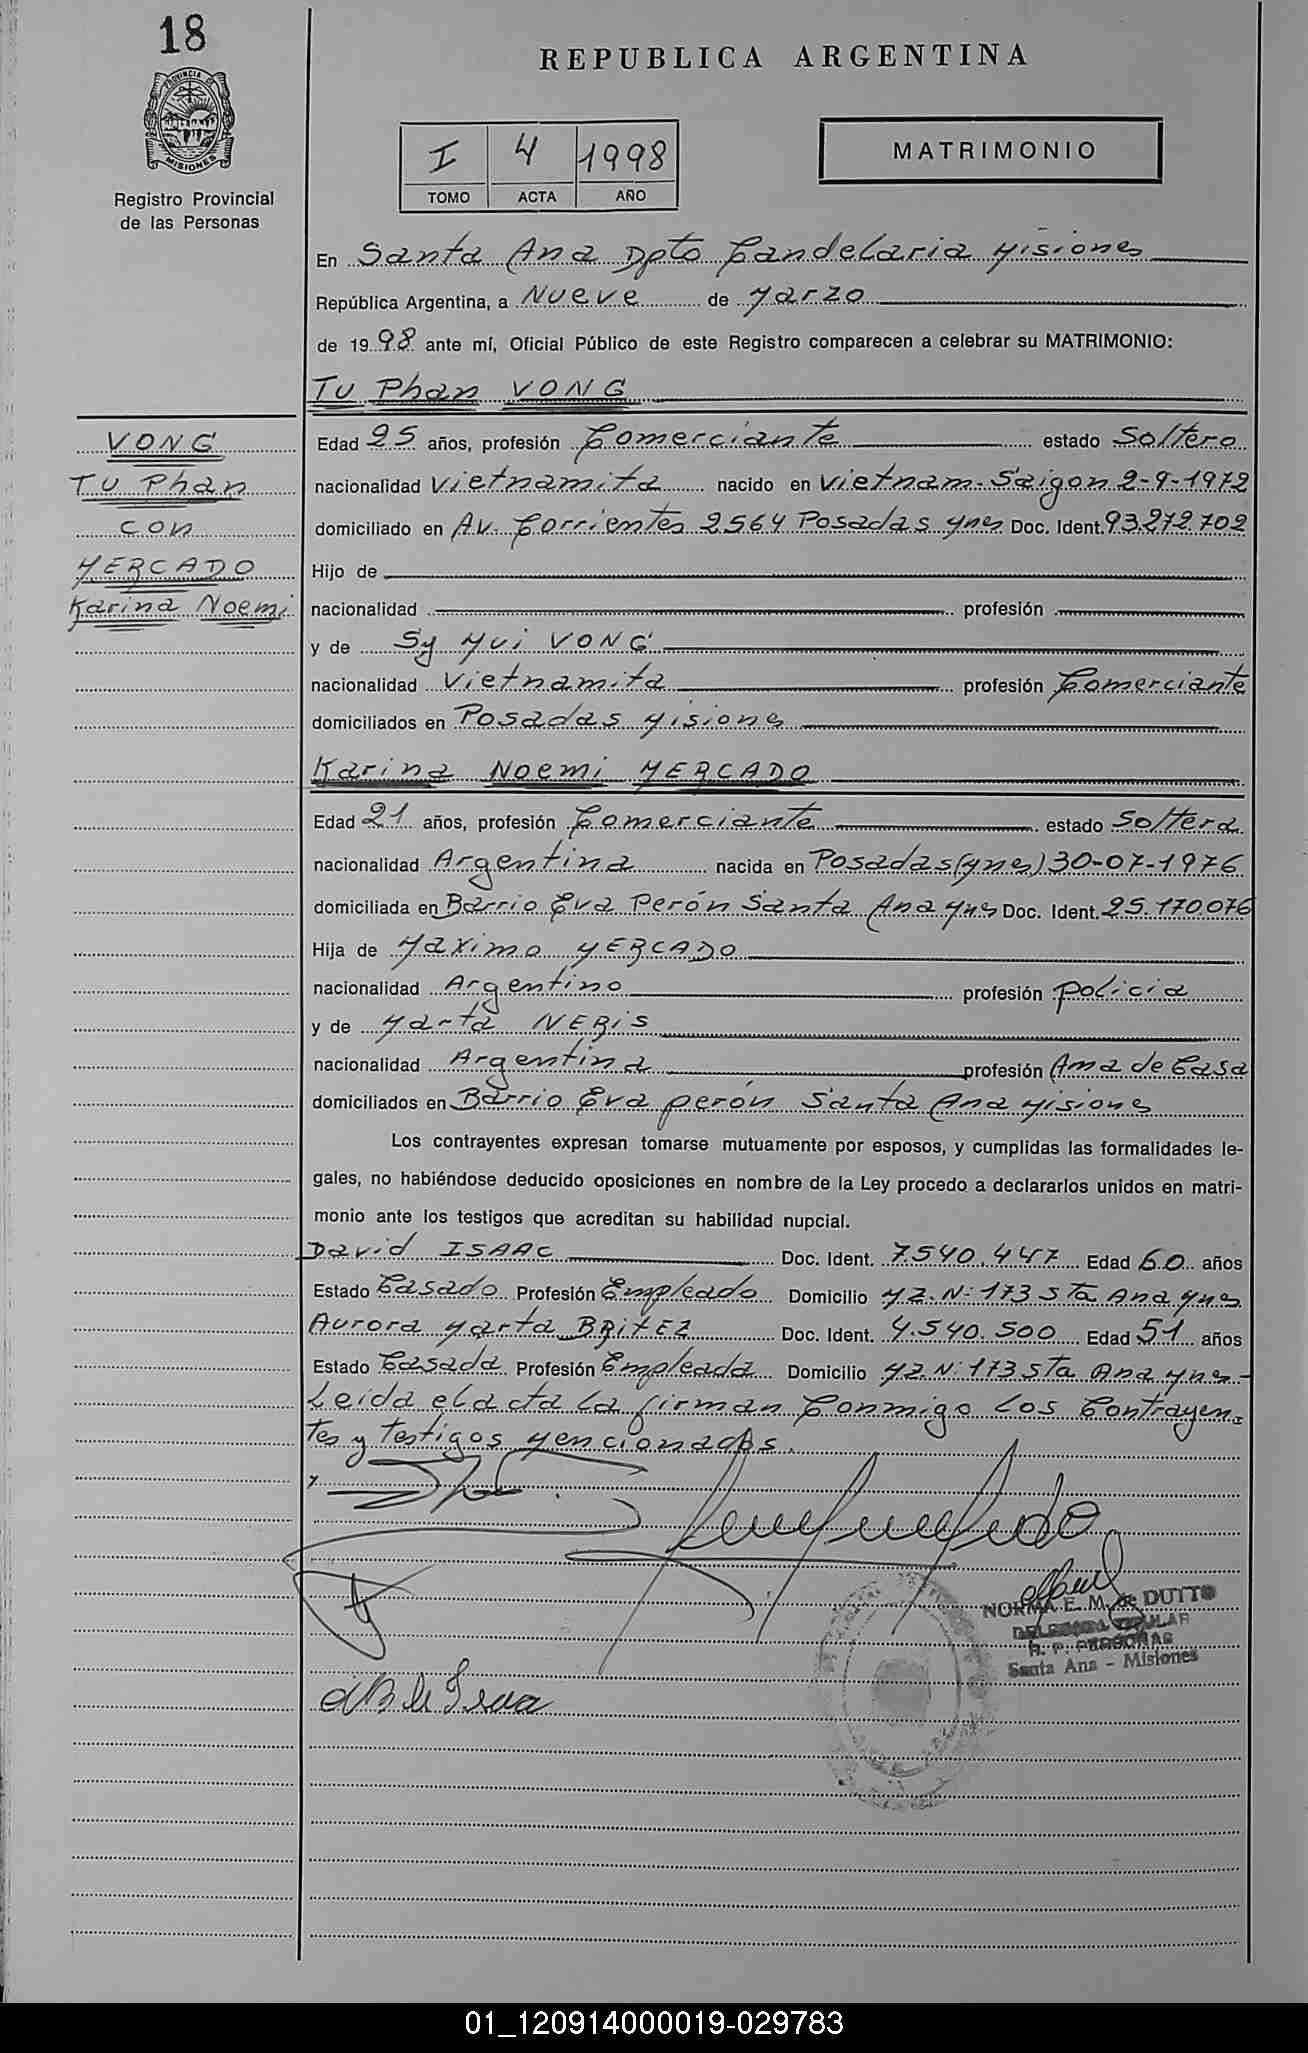 18
REPUBLICA ARGENTINA
PROVINCIA DE
MISIONES
Registro Provincial
de las Personas
I 4 1998
TOMO ACTA AÑO
MATRIMONIO
En Santa Ana Dpto Candelaria Misiones
República Argentina, a Nueve de Marzo
de 1998 ante mí, Oficial Público de este Registro comparecen a celebrar su MATRIMONIO:
TU Phan VONG
VONG
TU Phan
con
MERCADO
Karina Noemi
Edad 25 años, profesión Comerciante estado Soltero
nacionalidad Vietnamita nacido en Vietnam-Saigon 2-9-1972
domiciliado en Av. Corrientes 2564 Posadas Mnes Doc. Ident. 93.272.702
Hijo de
nacionalidad profesión
y de Sy Mui VONG
nacionalidad Vietnamita profesión Comerciante
domiciliados en Posadas Misiones
Karina Noemi MERCADO
Edad 21 años, profesión Comerciante estado Soltera
nacionalidad Argentina nacida en Posadas (Mnes) 30-07-1976
domiciliada en Barrio Eva Perón Santa Ana Mnes Doc. Ident. 25.170.076
Hija de Maximo MERCADO
nacionalidad Argentino profesión policia
y de Marta NERIS
nacionalidad Argentina profesión Ama de Casa
domiciliados en Barrio Eva perón Santa Ana Misiones
Los contrayentes expresan tomarse mutuamente por esposos, y cumplidas las formalidades le-
gales, no habiéndose deducido oposiciones en nombre de la Ley procedo a declararlos unidos en matri-
monio ante los testigos que acreditan su habilidad nupcial.
David ISAAC Doc. Ident. 7.540.447 Edad 60 años
Estado Casado Profesión Empleado Domicilio Mz. Nº 173 Sta Ana Mnes
Aurora Marta BRITEZ Doc. Ident. 4.540.500 Edad 51 años
Estado Casada Profesión Empleada Domicilio Mz. Nº 173 Sta Ana Mnes-
Leida el acta la firman Conmigo los Contrayen-
tes y testigos Mencionados.
NORMA E. M. de DUTTO
DELEGADA TITULAR
R. P. PERSONAS
Santa Ana - Misiones
01_120914000019-029783